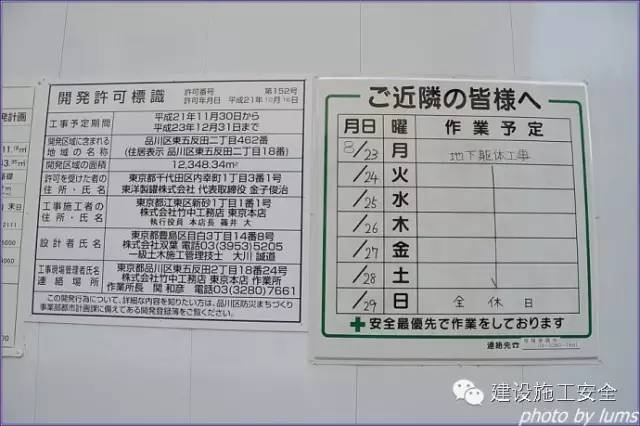 発計画
開発許可標識
許可番号 第152号
許可年月日 平成21年10月16日
工事予定期間
平成21年11月30日から
平成23年12月31日まで
開発区域に含まれる
地域の名称
品川区東五反田二丁目462番
(住居表示 品川区東五反田二丁目18番)
開発区域の面積
12,348.34m²
許可を受けた者の
住所・氏名
東京都千代田区内幸町1丁目3番1号
東洋製罐株式会社 代表取締役 金子俊治
工事施工者の
住所・氏名
東京都江東区新砂1丁目1番1号
株式会社竹中工務店 東京本店
執行役員 本店長
設計者氏名
東京都豊島区目白3丁目14番8号
株式会社双葉 電話03(3953)5205
一級土木施工管理技士 大川 誠道
工事現場管理者氏名
連絡場所
東京都品川区東五反田2丁目18番24号
株式会社竹中工務店 東京本店 作業所
作業所長 関 和彦 電話03(3280)7661
この開発行為について、詳細な内容を知りたい方は、品川区防災まちづくり
事業部都市計画課に備えてある開発登録簿をご覧ください。
ご近隣の皆様へ
月日 曜 作業予定
8/23 月 地下躯体工事
/24 火
/25 水
/26 木
/27 金
/28 土
/29 日 全休日
安全最優先で作業をしております
連絡先☎
建设施工安全
photo by lums